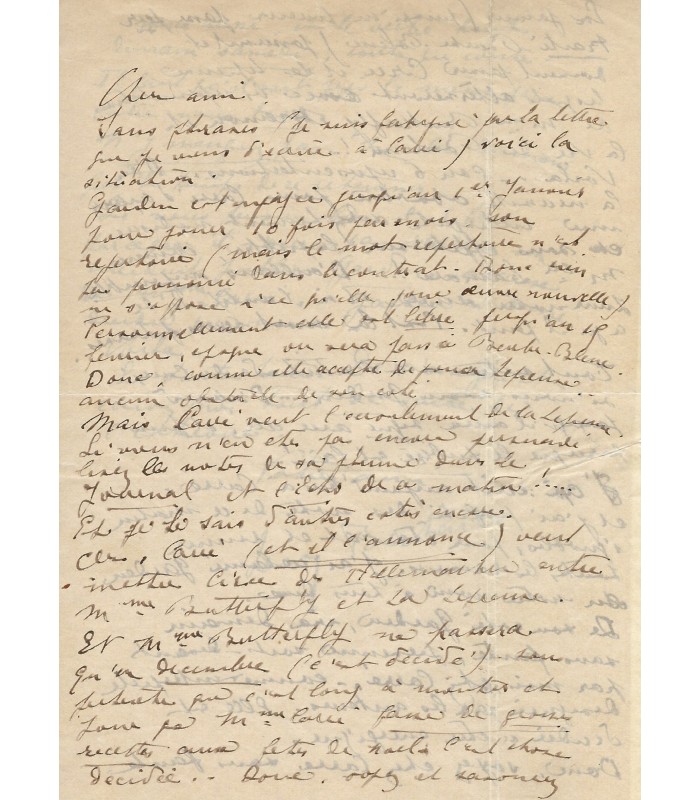 Cher ami.
Sans phrases (je suis fatigué par la lettre
que je viens d'écrire à Carré) voici la
situation.
Garden est engagée jusqu'au 1er Janvier
pour jouer 10 fois par mois son
répertoire (mais le mot répertoire n'est
pas prononcé dans le contrat. Donc rien
ne s'oppose à ce qu'elle joue œuvre nouvelle)
Personnellement elle est libre jusqu'au 15
février, époque où sera
Donc, comme elle accepte de jouer Lépreuse..
aucun obstacle de son côté.
Mais Carré veut l'enterrement de la Lépreuse.
Si vous n'en êtes pas encore persuadé
lisez les notes de sa plume dans le
Journal et l'Echo de ce matin!....
Et je le sais d'autres cotés encore.
Cer, Carré (et il l'annonce) veut
mettre Circé de Hillemacher entre
Mme Butterfly et La Lépreuse.
Et Mme Butterfly ne passera
qu'en décembre (c'est décidé) sous
prétexte que c'est long à monter et
pour que Mme Carré fasse de grosses
recettes aux fêtes de Noël. C'est chose
décidée.. Donc, voyez et